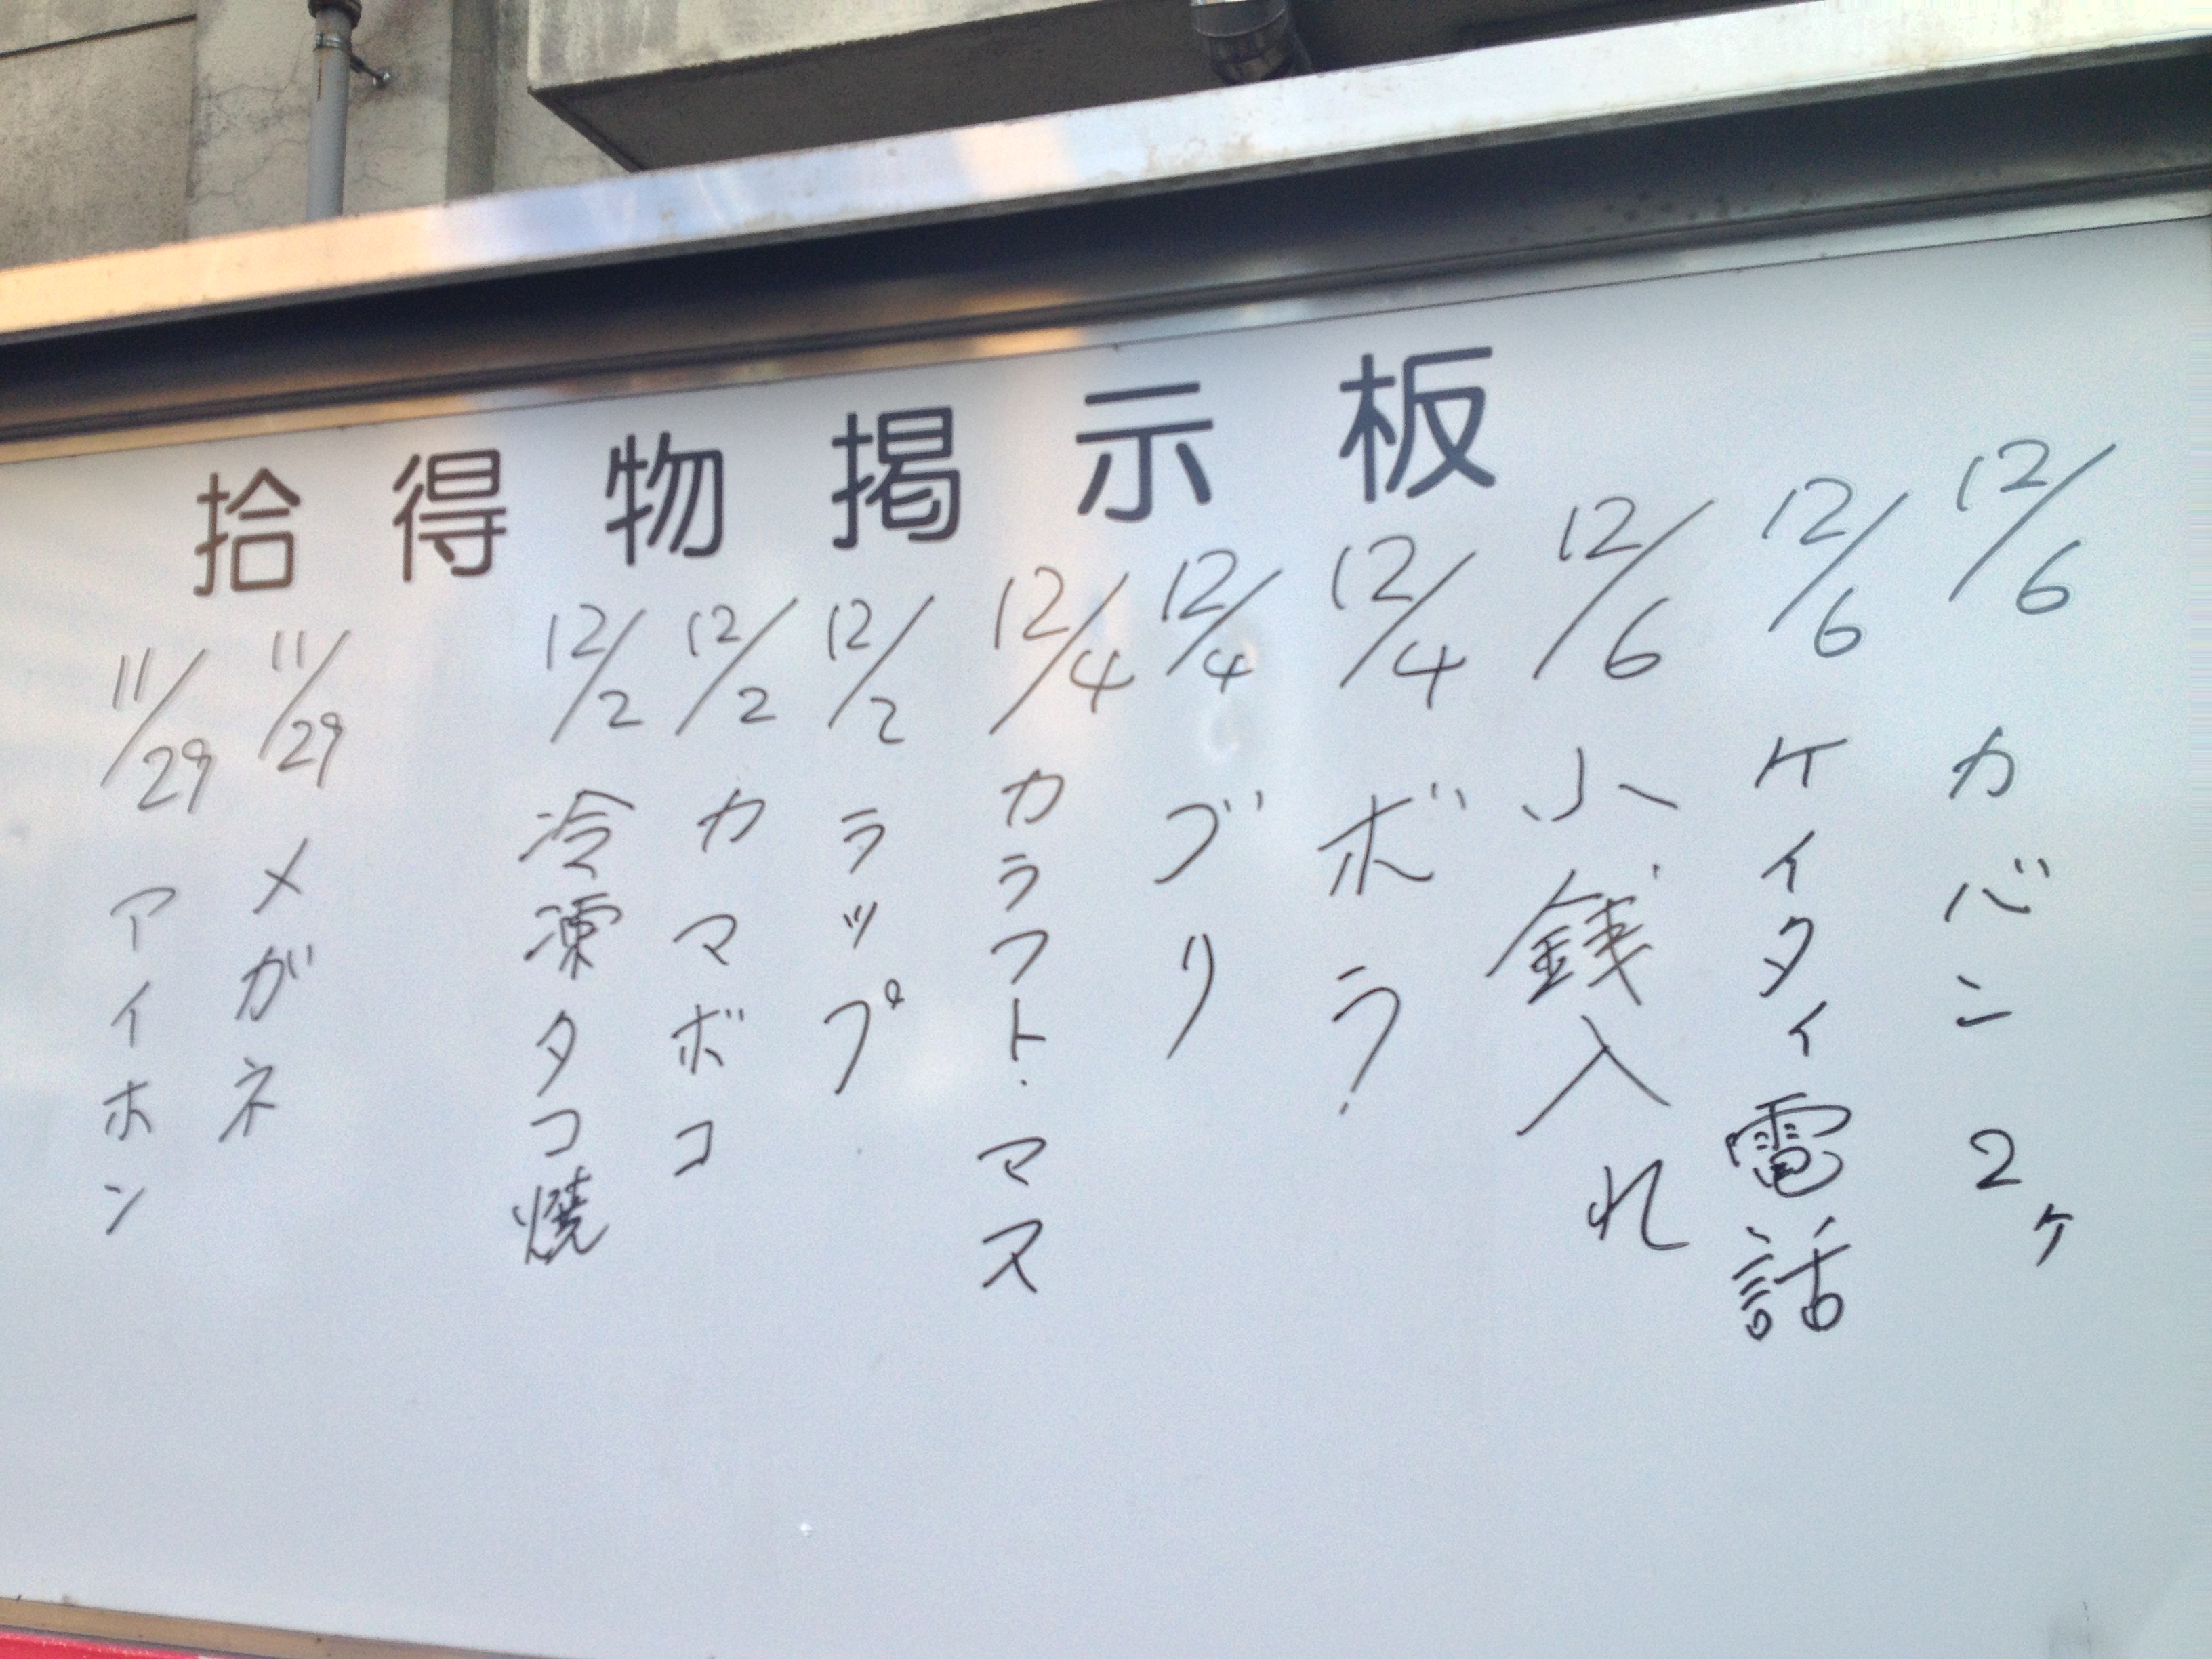 拾得物掲示板
12/6 カバン 2ヶ
12/6 ケイタイ電話
12/6 小銭入れ
12/4 ボラ
12/4 ブリ
12/4 カラフト・マス
12/2 ラップ
12/2 カマボコ
12/2 冷凍タコ焼
11/29 メガネ
11/29 アイホン